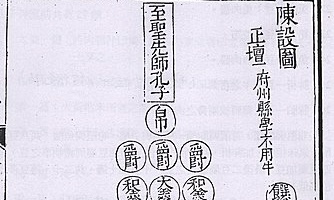 陳設圖
正壇 府州縣學不用牛
至聖先師孔子
帛
爵 爵 爵
和羹 太羹 和羹